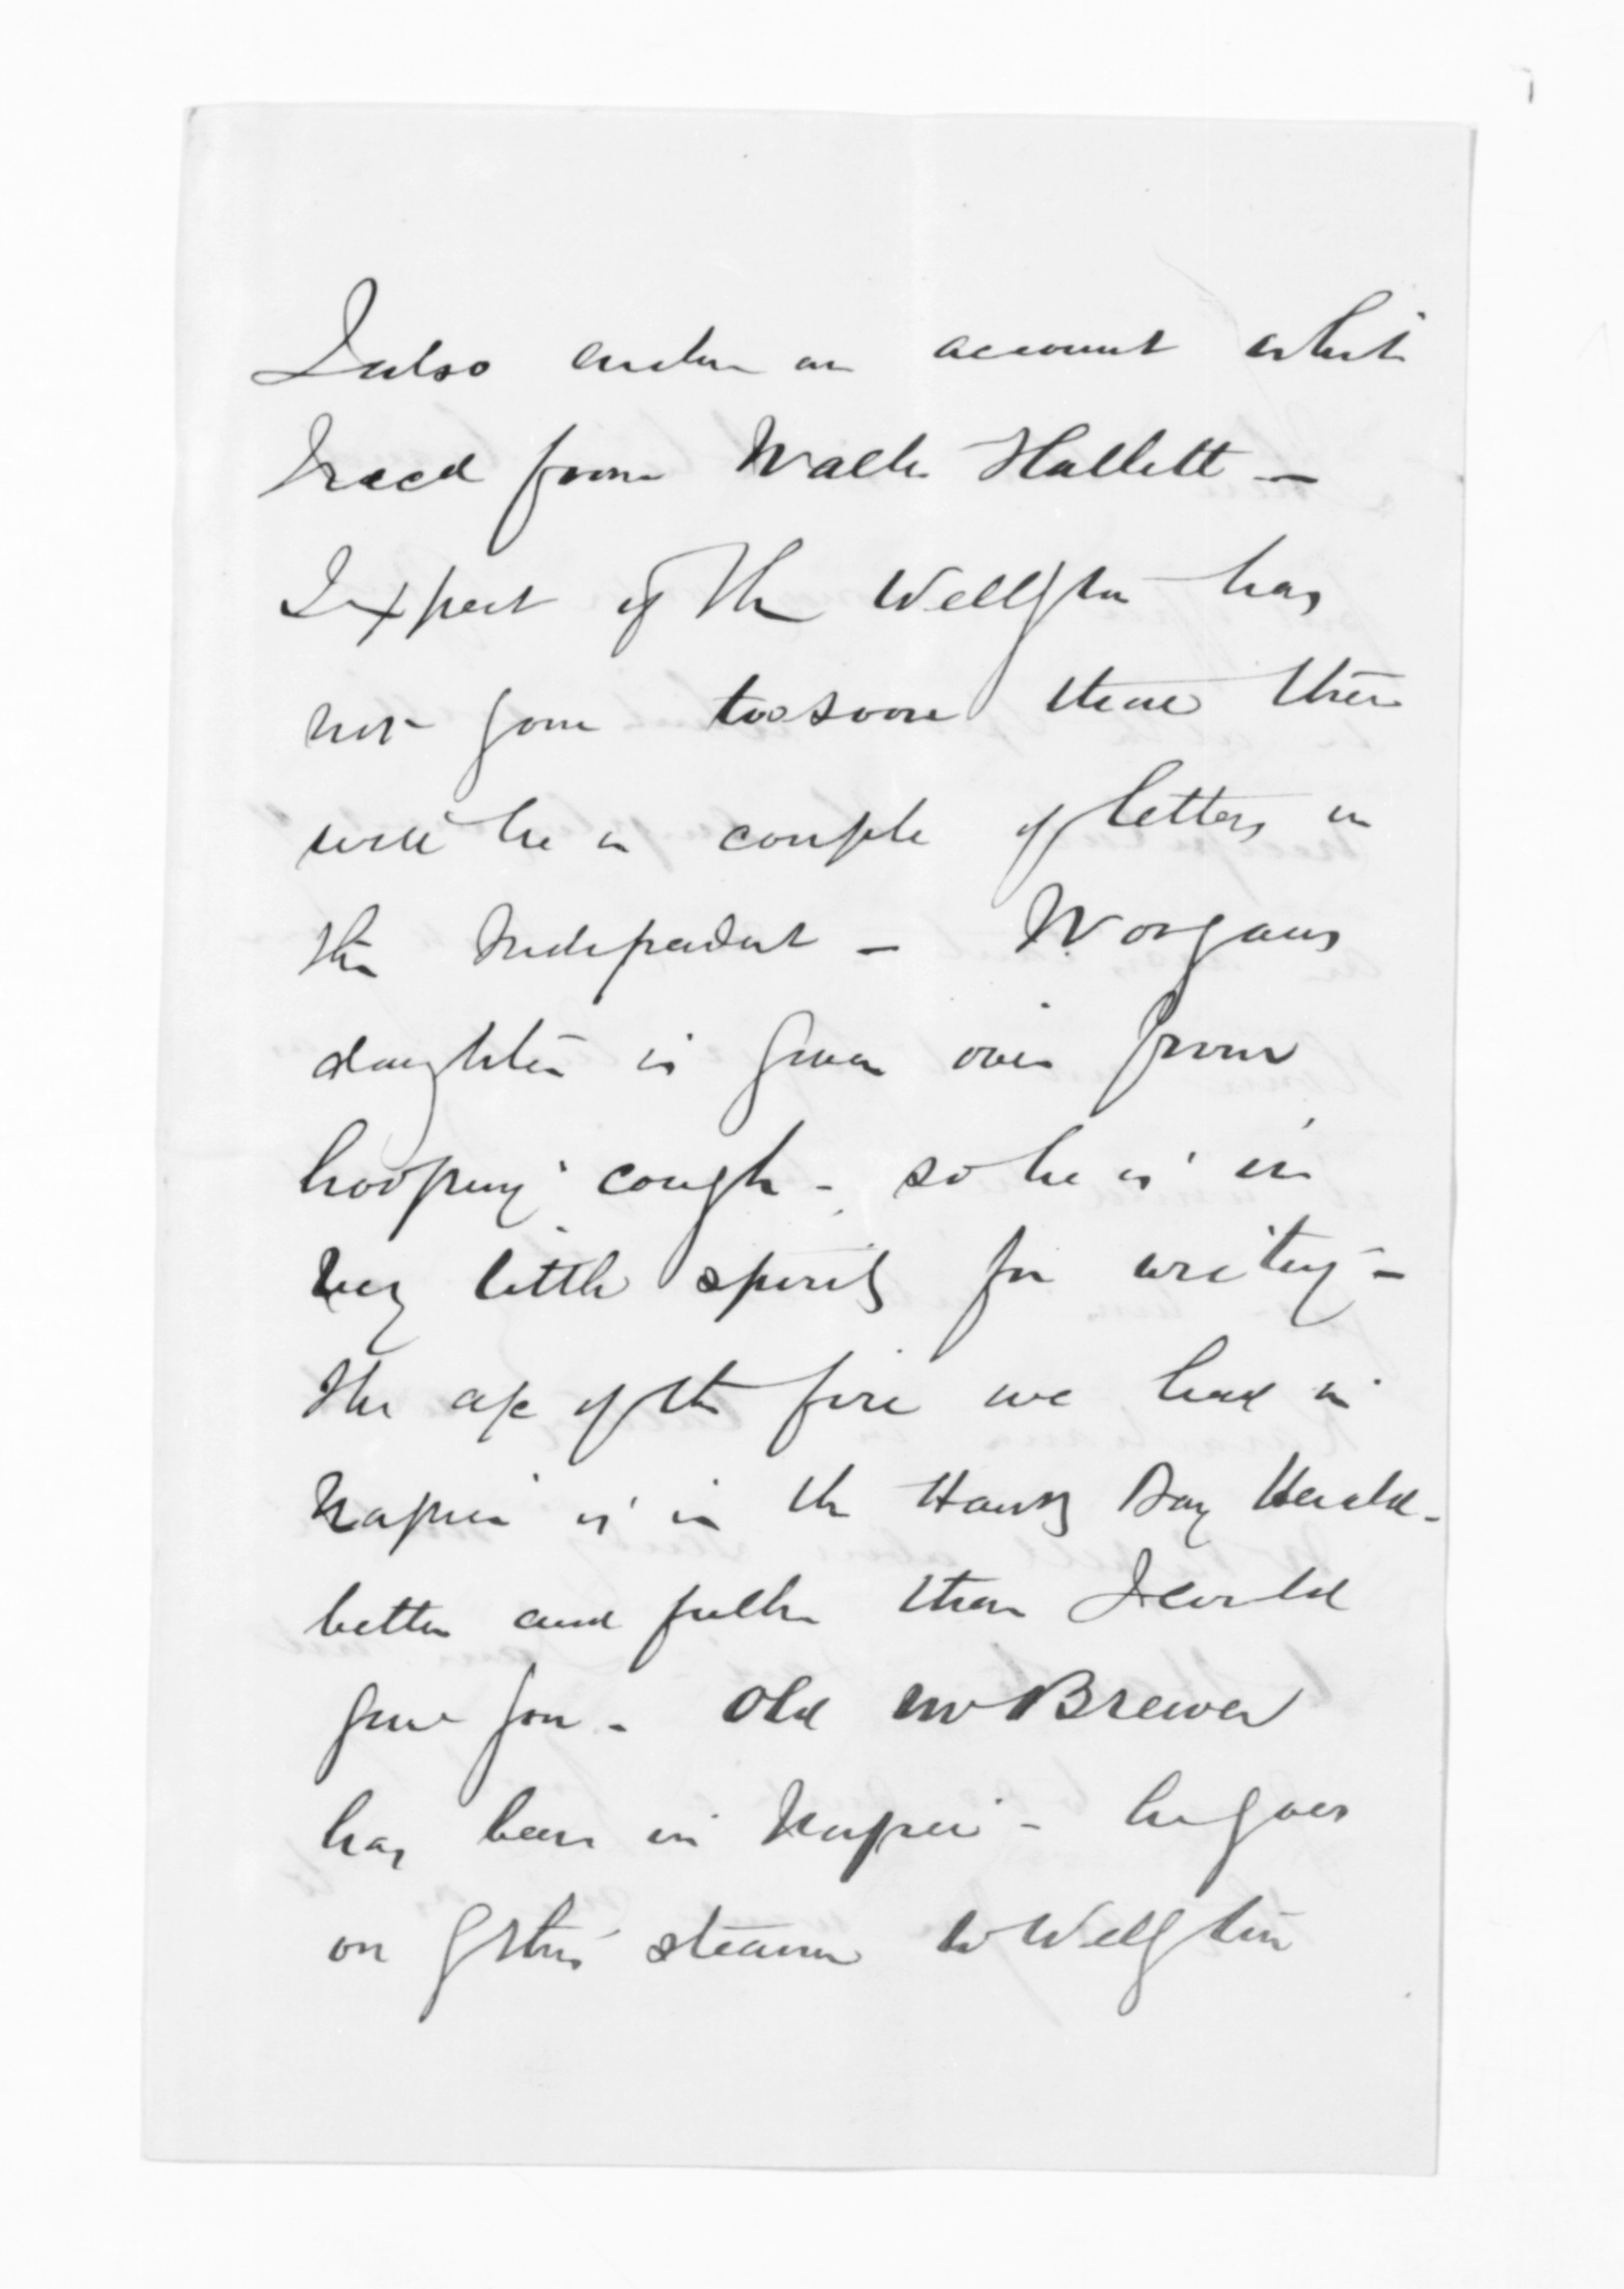 I also enclose an account which
I recd from Walter Hallett —
I expect if the Wellgtn has
not gone too soon there there
will be a couple of letters in
the Independent — Worgans
daughter is given over from
hooping cough - so he is in
very little spirits for writing -
the a/c of the fire we had in
Napier is in the Hawkes Bay Herald -
better and fuller than I could
give you - Old Mr Brewer
has been in Napier - he goes
on by this steamer to Wellgton